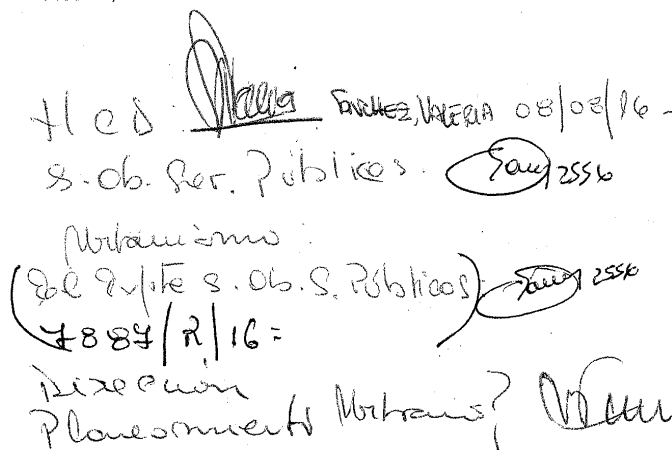 HCD SANCHEZ, VALERIA 08/08/16 -
S. Ob. Ser. Públicos. 2556
Urbanismo:
S. Ob. S. Públicos) 2556
7887/R/16=
Dirección
Planeamiento Urbano?